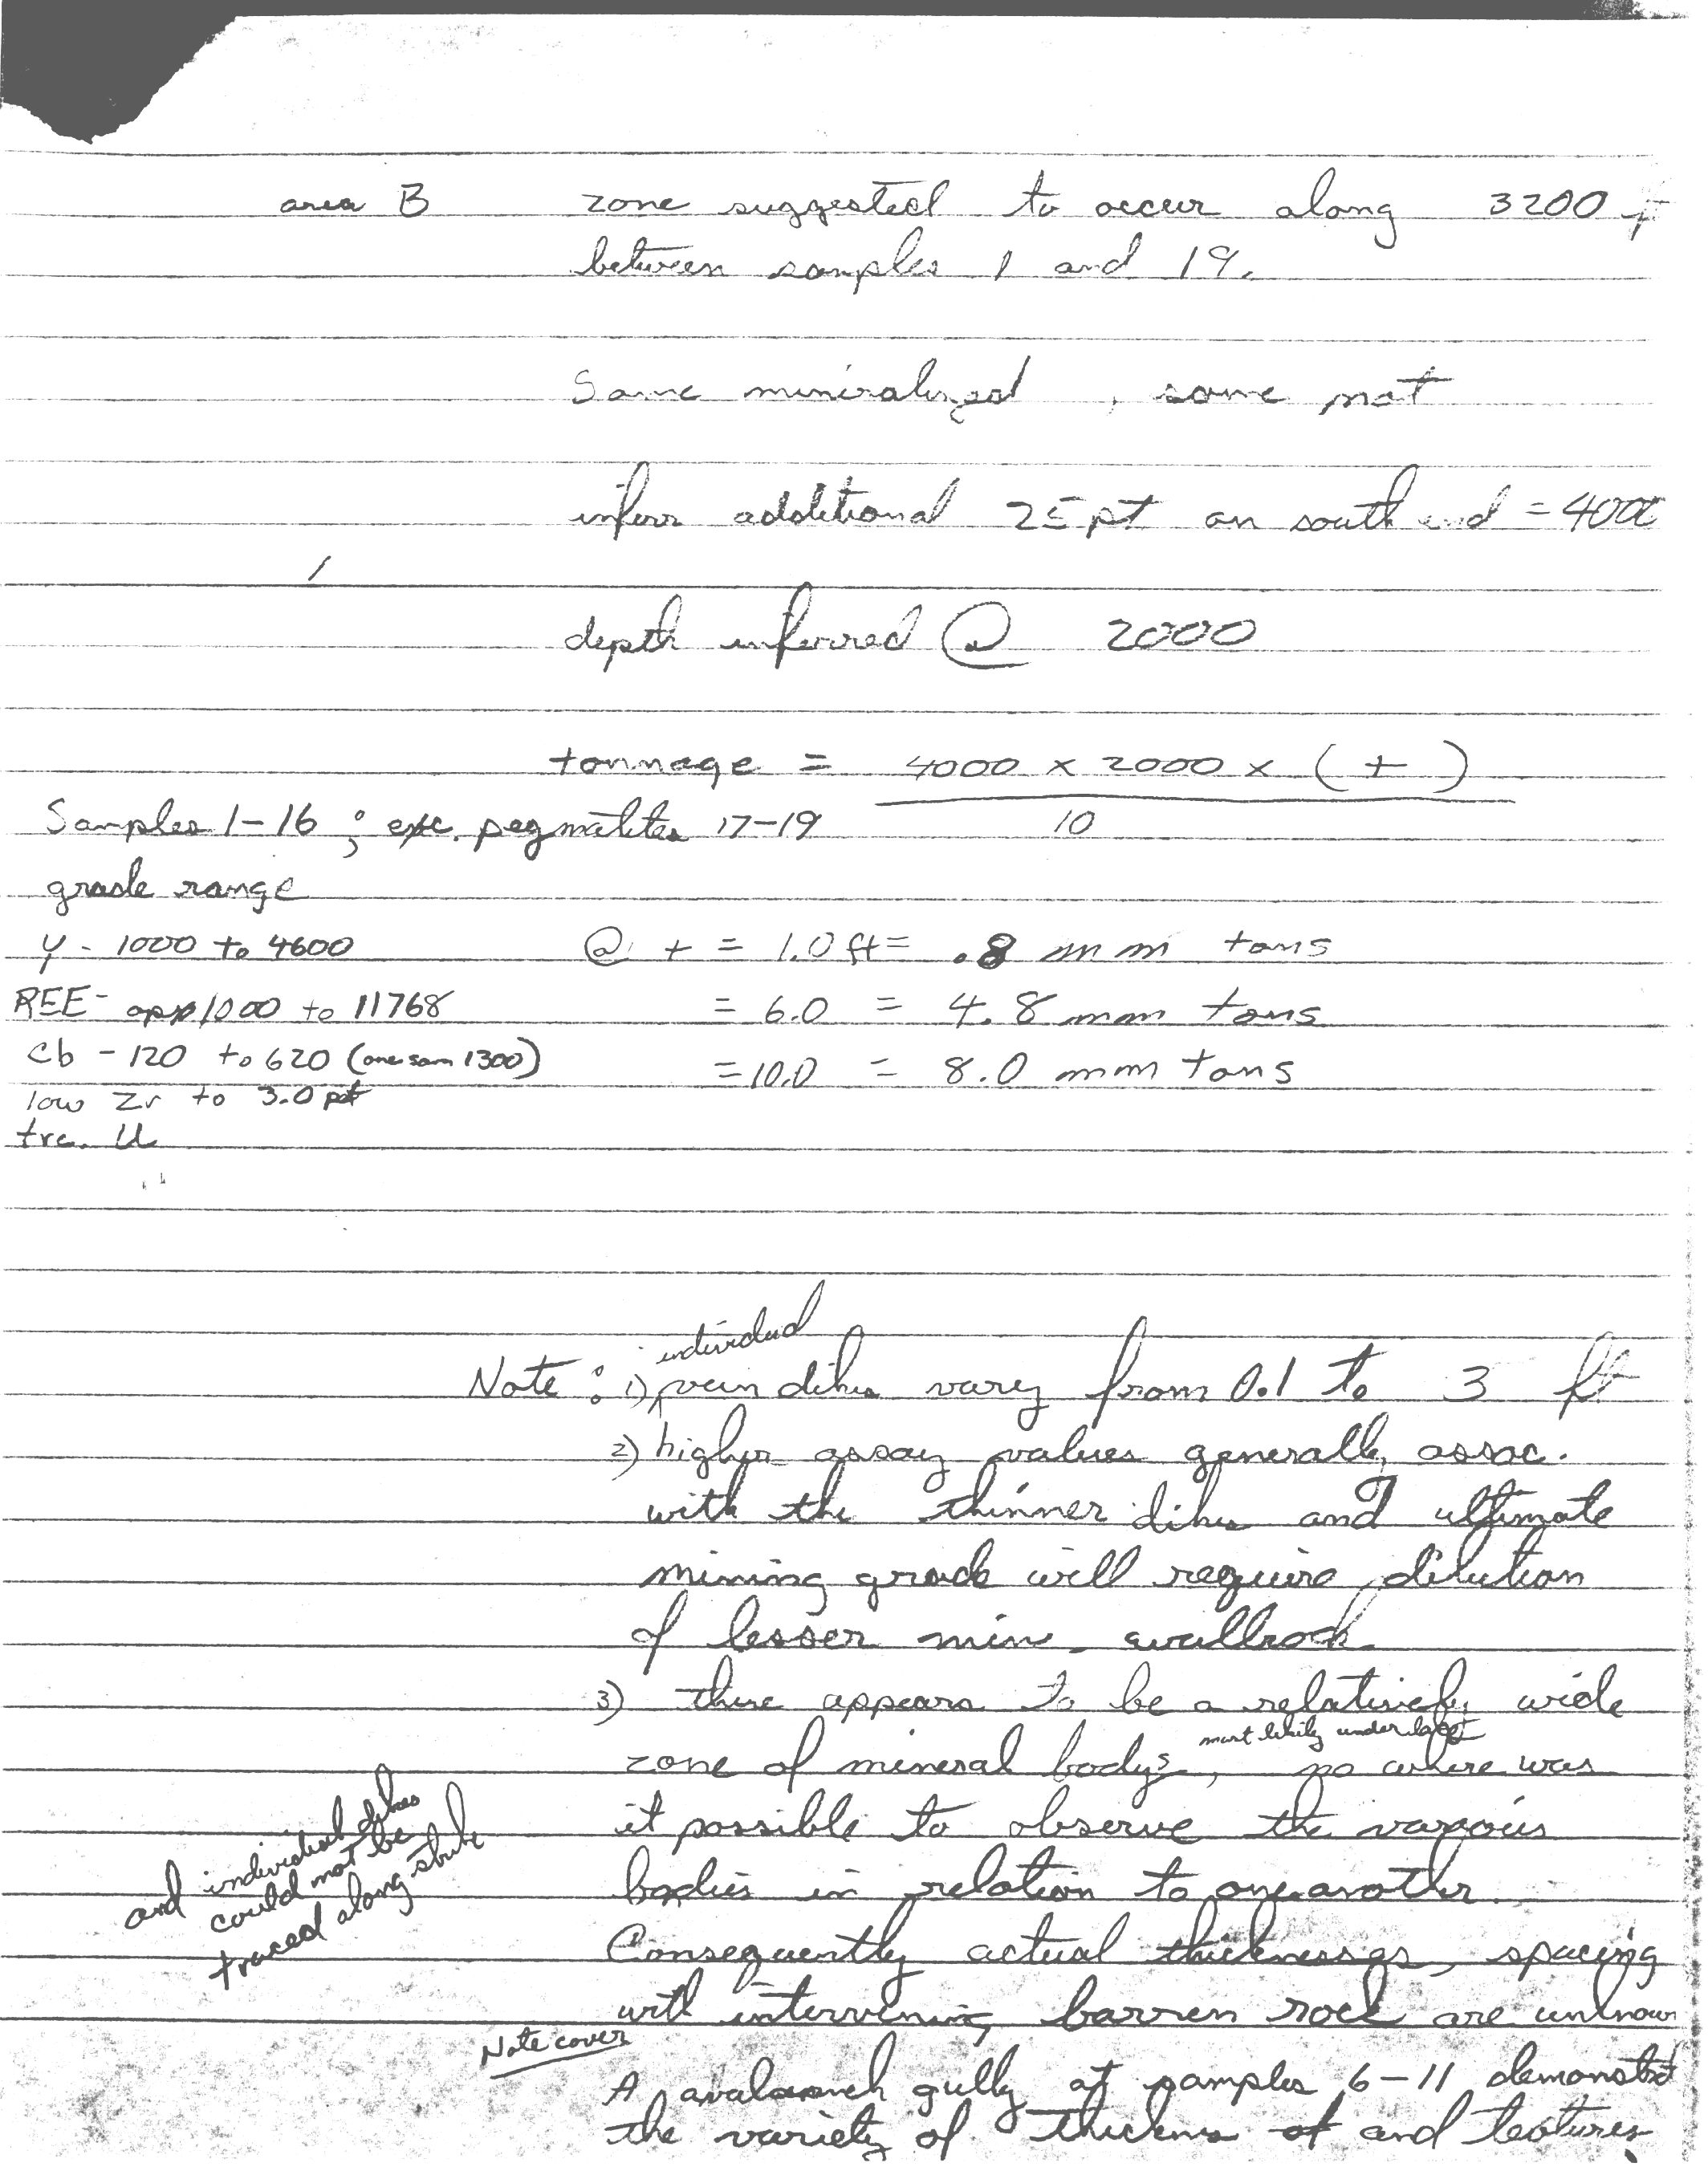 area B zone suggested to occur along 3200 ft
between samples 1 and 19.
Some mineralized, some not
infer additional 25 pct on south end = 4000
depth inferred @ 2000
tonnage = 4000 x 2000 x (t)
10
Samples 1-16; exc. pegmatites 17-19
grade range
Y - 1000 to 4600
REE - app 1000 to 11768
Cb - 120 to 620 (one sam 1300)
low Zr to 3.0 pct
trc. U
@ t = 1.0 ft = .8 mm tons
= 6.0 = 4.8 mm tons
= 10.0 = 8.0 mm tons
individual
Note: 1) vein dikes vary from 0.1 to 3 ft
2) higher assay values generally assoc.
with the thinner dikes and ultimate
mining grade will require dilution
of lesser min. wallrock
3) there appears to be a relatively wide
most likely under
zone of mineral bodys, no where was
it possible to observe the various
bodies in relation to one another.
and individual dikes
could not be
traced along strike
Consequently actual thicknesses, spacing
with intervening barren rock are unknown
Note cover
A avalanch gully at samples 6-11 demonstrat
the variety of thickness and textures